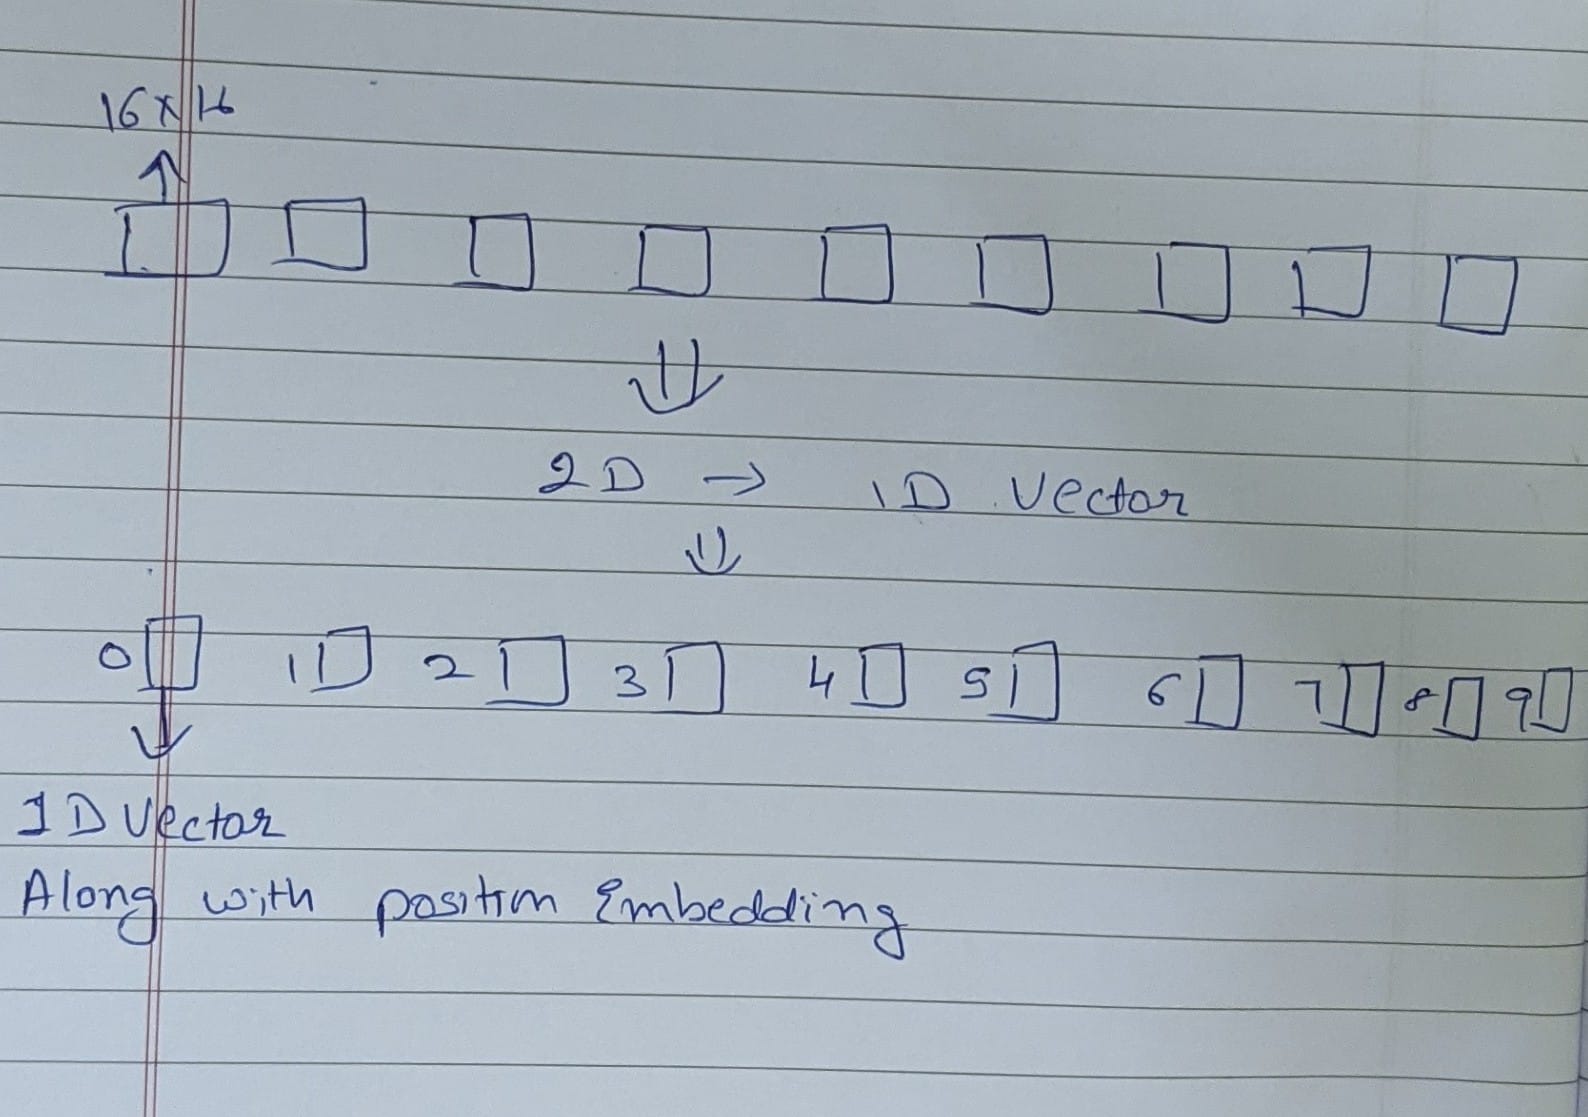 16 x 16
2D → 1D Vector
0 1 2 3 4 5 6 7 8 9
1D Vector
Along with position Embedding